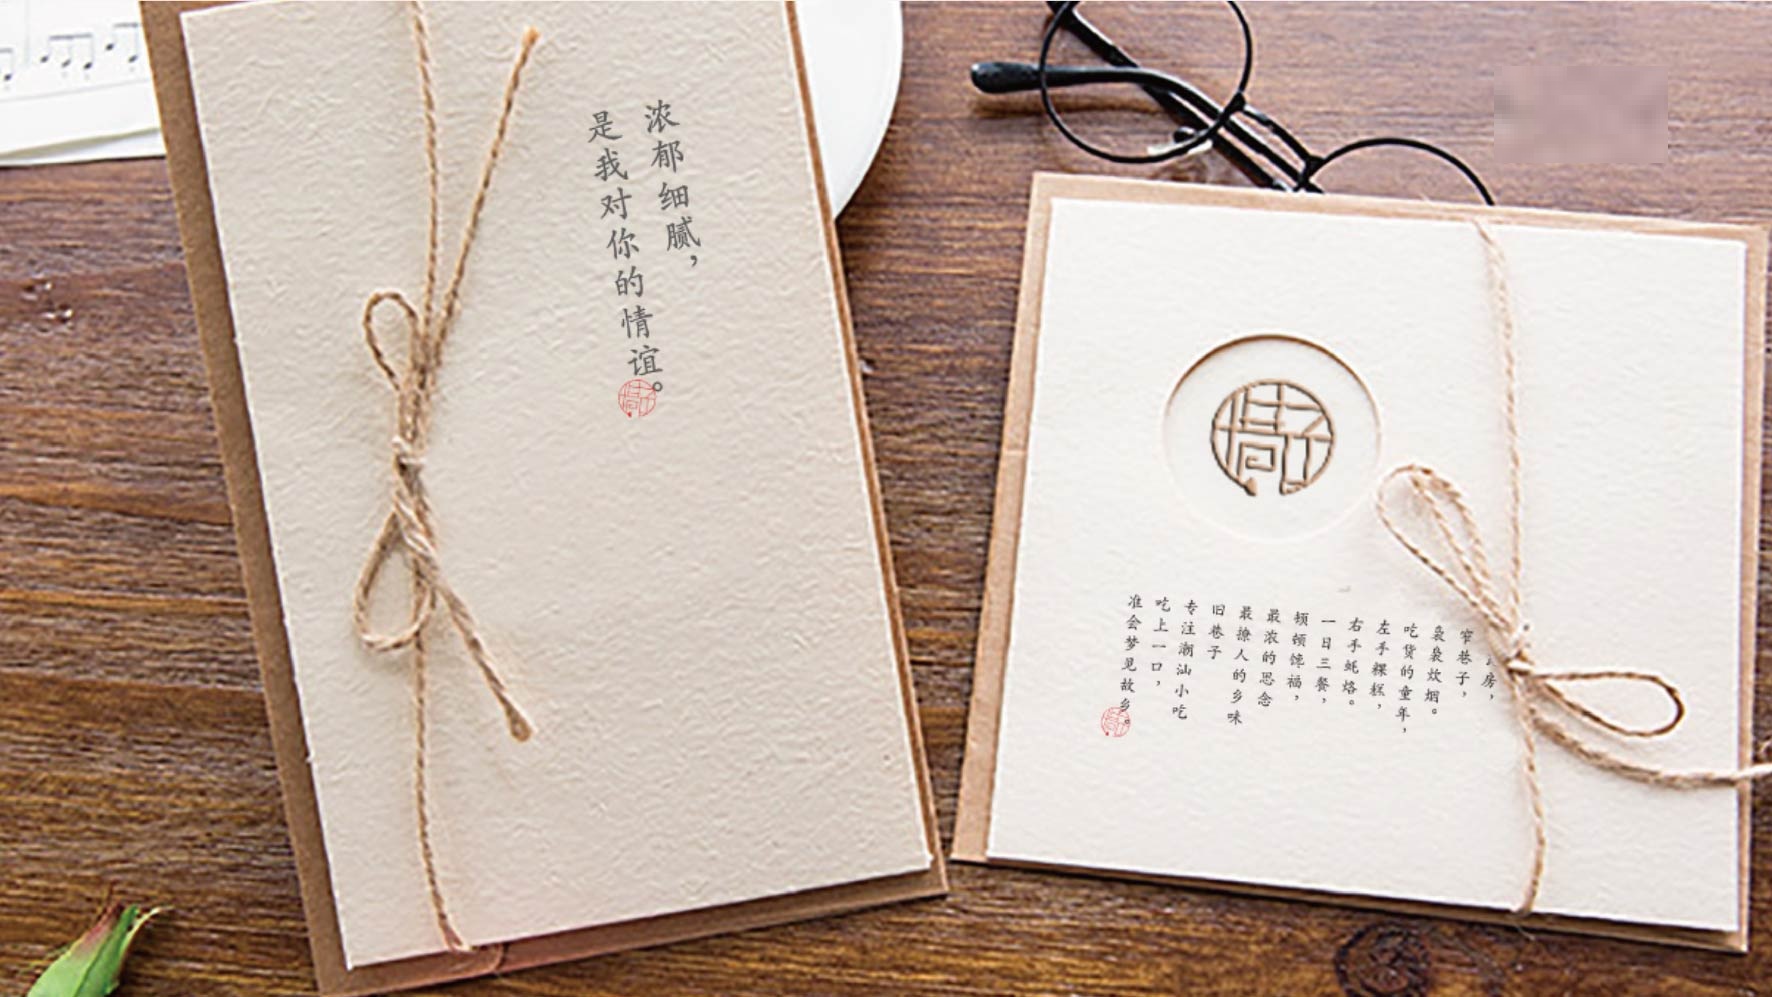 浓郁细腻，
是我对你的情谊。
房，
窄巷子，
袅袅炊烟。
吃货的童年，
左手粿糕，
右手蚝烙。
一日三餐，
顿顿福，
最浓的思念
最撩人的乡味
旧巷子
专注潮汕小吃
吃上一口，
准会梦见故乡。